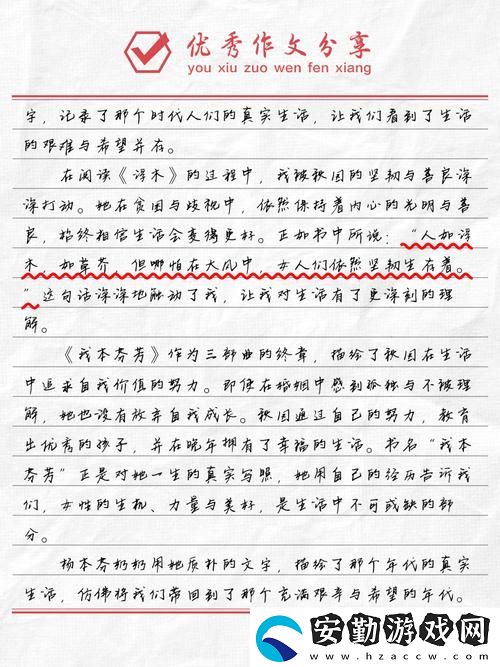 优秀作文分享
you xiu zuo wen fen xiang
字，记录了那个时代人们的真实生活，让我们看到了生活
的艰难与希望并存。
在阅读《浮木》的过程中，我被秋园的坚韧与善良深
深打动。她在贫困与歧视中，依然保持着内心的光明与善
良，始终相信生活会变得更好。正如书中所说：“人如浮
木，如草芥，但哪怕在大风中，女人们依然坚韧生存着。
”这句话深深地触动了我，让我对生活有了更深刻的理
解。
《我本芬芳》作为三部曲的终章，描绘了秋园在生活
中追求自我价值的努力。即使在婚姻中感到孤独与不被理
解，她也没有放弃自我成长。秋园通过自己的努力，教育
出优秀的孩子，并在晚年拥有了幸福的生活。书名“我本
芬芳”正是对她一生的真实写照，她用自己的经历告诉我
们，女性的生机、力量与美好，是生活中不可或缺的部
分。
杨本芬奶奶用她质朴的文字，描绘了那个年代的真实
生活，仿佛将我们带回到了那个充满艰辛与希望的年代。
安勤游戏网
www.hzaccw.com